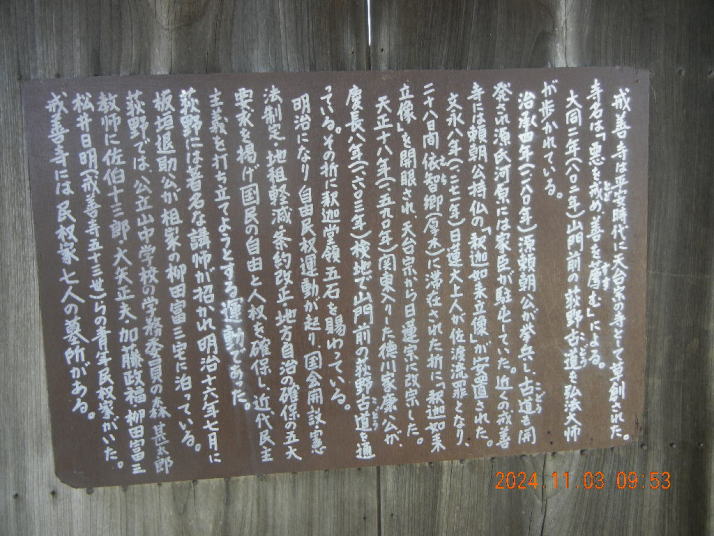 戒善寺は平安時代に天台宗の寺として草創された。
寺名は「悪を戒め善を薦む」による。
大同二年(八〇二年)山門前の荻野古道を弘法大師
が歩かれている。
治承四年(一一八〇年)源頼朝公が挙兵し、古道を開
発され源氏河原には家臣が駐屯していた。近くの戒善
寺には頼朝公持仏の「釈迦如来立像」が安置された。
文永八年(一二七一年)日蓮大上人が佐渡流罪となり、
二十八日間 依智郷(厚木)に滞在された折に「釈迦如来
立像」を開眼され、天台宗から日蓮宗に改宗した。
天正十八年(一五九〇年)関東入りした徳川家康公が、
慶長八年(一六〇三年)検地で山門前の荻野古道を通
っている。その折に釈迦堂領五石を賜わっている。
明治になり自由民権運動が起り、国会開設・憲
法制定・地租軽減・条約改正・地方自治の確保の五大
要求を掲げ国民の自由と人権を確保し、近代民主
主義を打ち立てようとする運動であった。
荻野には著名な講師が招かれ明治十六年七月に
板垣退助公が柤家の柳田冨三宅に泊っている。
荻野では、公立山中学校の学務委員の森 甚太郎
教師に佐伯十三郎・大矢正夫 加藤政福・柳田冨三
松井日明(戒善寺五十三世)らの青年民権家がいた。
戒善寺には 民権家 七人の墓所がある。
こどう
すす
えち
こどう
こどう
2024.11.03 09:53